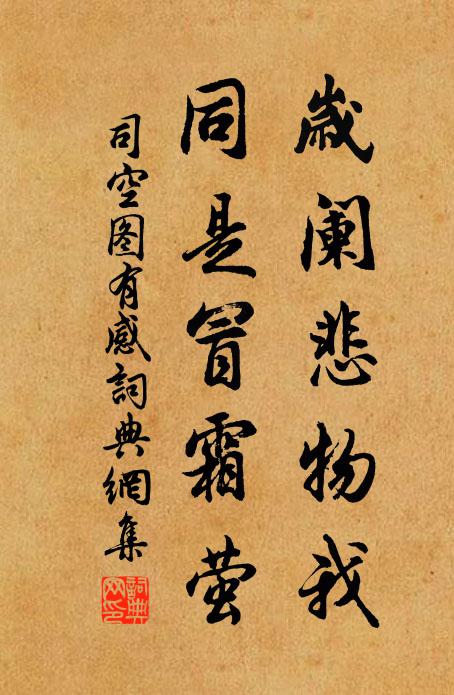 歲阑悲物我
同是冒霜萤
司空图有感詞典網集
詞典网印